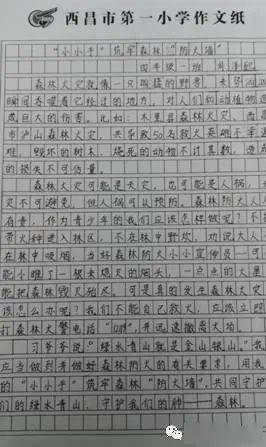 西昌市第一小学作文纸
“小小手”筑牢森林“防火墙”
四年级一班
森林火灾就像一只凶猛的野兽，来势汹汹
瞬间吞噬着它经过的地方，对人们和动植物造
成巨大的伤害。比如：木里县森林火灾、西昌
市泸山森林火灾，共导致50名救火英雄不幸遇
难，毁坏的树木，烧死的动物不计其数，造成
的损失不可估量。
森林火灾可能是天灾，也可能是人祸，天
灾不可避免，但人祸可以预防。森林防火人人
有责，作为青少年的我们应该怎样做呢？不
带火种进入林区，不在林中野炊，劝说大人
在林中吸烟，当好森林防火小小宣传员
能小瞧了一根未熄灭的烟头，一点点的火星
能把森林毁灭殆尽。可是真的发生森林火灾
该怎么办呢？我们不能自己救火，应该立即
打森林火警电话“12119”，并迅速撤离火场。
习爷爷说“绿水青山就是金山银山。”我
应当做到并做好森林防火的有关要求，用我
的“小小手”筑牢森林“防火墙”，共同守护
们的绿水青山，守护我们的肺——森林。